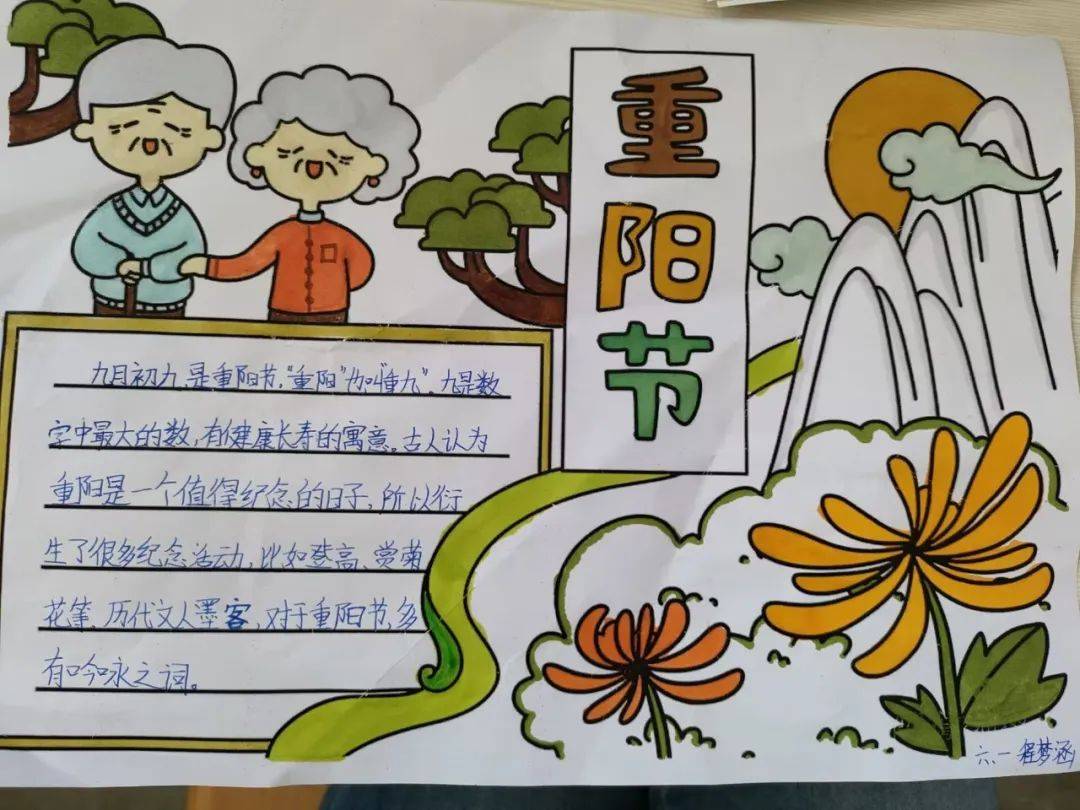 重阳节
九月初九,是重阳节,“重阳”也叫“重九”。九是数
字中最大的数,有健康长寿的寓意。古人认为
重阳是一个值得纪念的日子,所以衍
生了很多纪念活动,比如登高、赏菊
花等,历代文人墨客,对于重阳节,多
有吟咏之词。
六、一 程梦涵